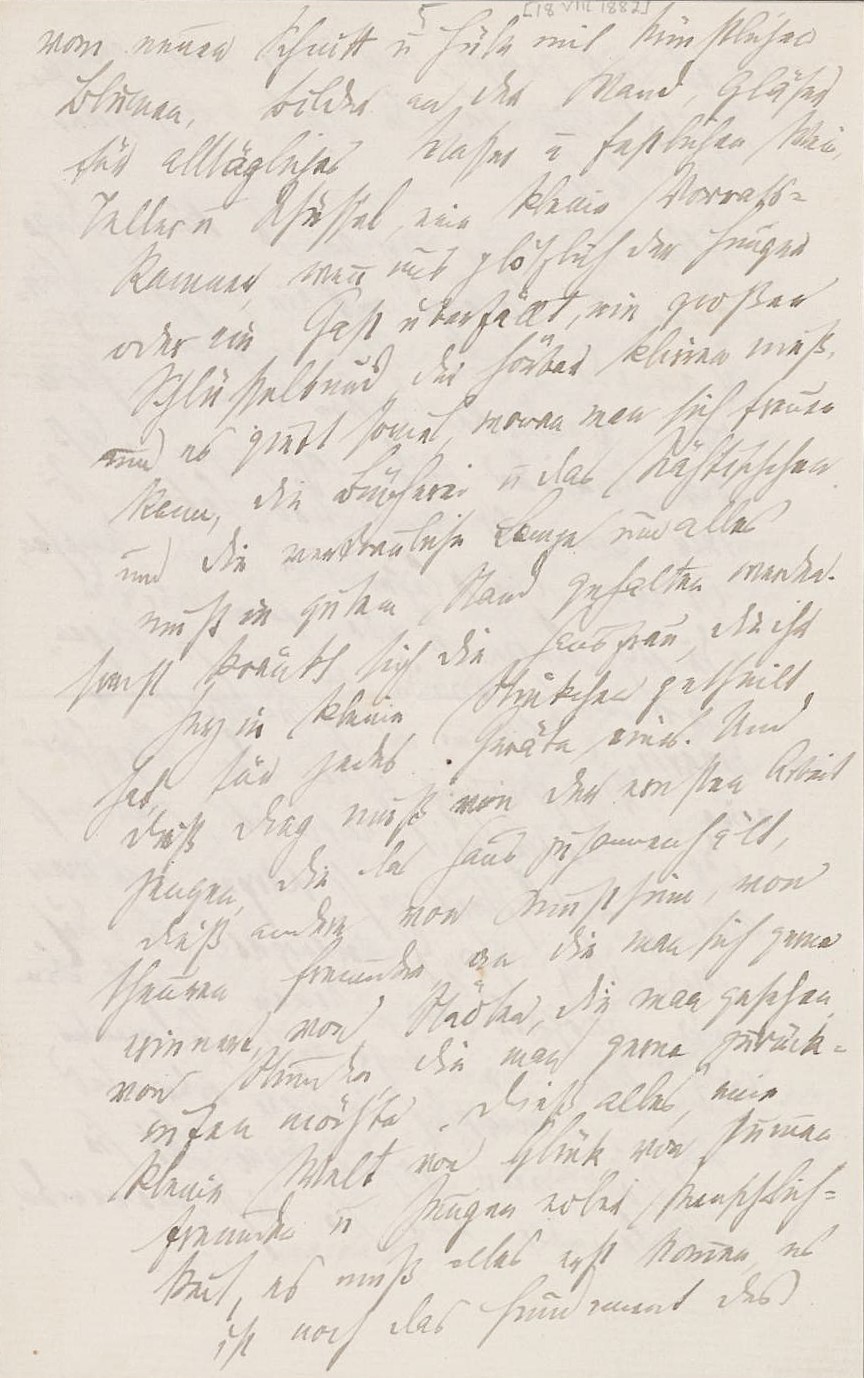 5 [18 VIII 1882]
vom neuen Schnitt u Hüte mit künstlichen
Blumen, Bilder an der Wand, Gläser
für alltägliches Wasser u festlichen Wein,
Teller u Schüssel, eine kleine Vorraths-
kammer, wenn uns plötzlich der Hunger
oder ein Gast überfällt, ein großer
Schlüsselbund der hörbar klirren muß.
und es giebt soviel, woran man sich freuen
kann, die Bücherei u das Nähtischchen
und die vertrauliche Lampe und alles
muß in gutem Stand gehalten werden.
sonst kränkt sich die Hausfrau, die ihr
Herz in kleine Stückchen getheilt
hat, für jedes Geräte eines. Und
dieß Ding muß von der ernsten Arbeit
zeugen, die das Haus zusammenhält,
dieß andere von Kunstsinn, von
theuren Freunden, an die man sich gerne
erinnert, von Städten, die man gesehen,
von Stunden, die man gerne zurück-
rufen möchte. Dieß alles, eine
kleine Welt von Glück von stummen
Freunden u Zeugen edler Menschlich-
keit, es muß alles erst kommen, es
ist noch das Fundament des